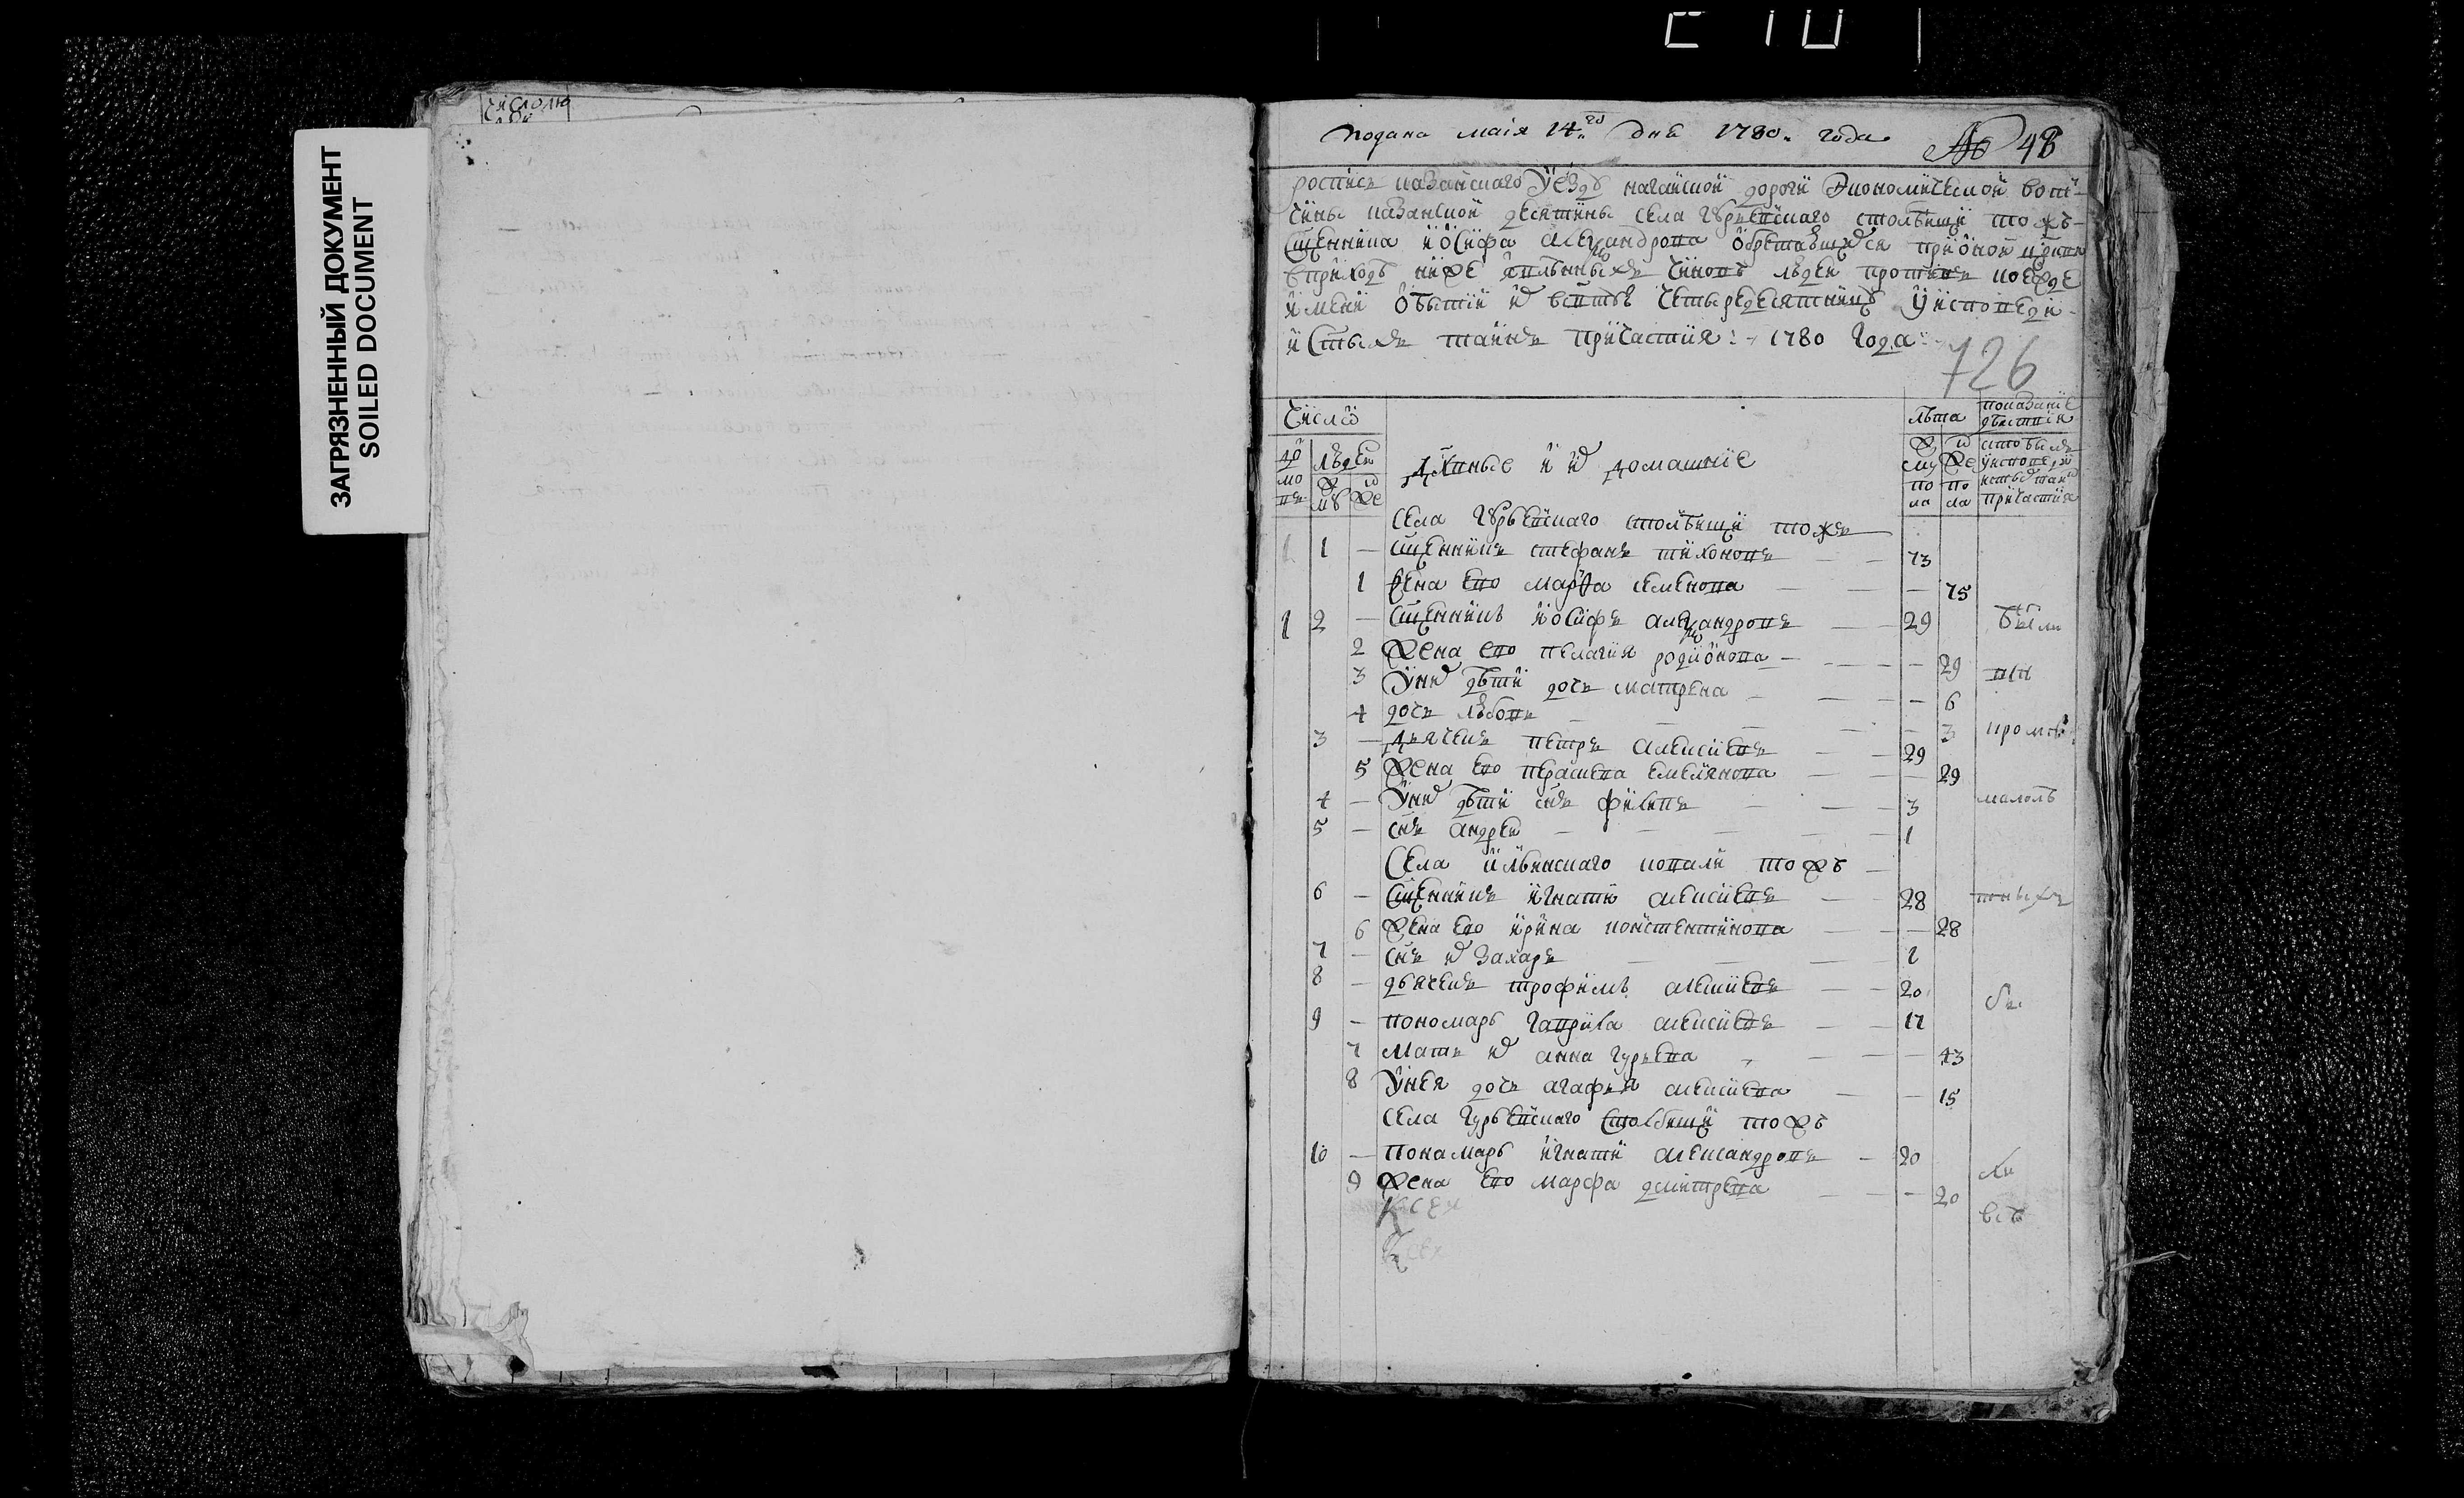 ЗАГРЯЗНЕННЫЙ ДОКУМЕНТ
SOILED DOCUMENT
числомъ
Подана маія 14го дня 1780. года № 48
роспись казанскаго уѣзда нагайской дороги экономической вот-
чины казанской десятины села гурьевскаго столбищи тожъ
сщенника иосифа александрова обретающихся при оной цркви
в приходѣ ниже явленныхъ чиновъ людей противъ коежде
имени о бытии их во стую четыредесятницу у исповеди
и стыхъ таинъ причастия: 1780 года:
726
Число
дво
мо
въ
людей
му
же
дховные и их домашние
лѣта
му
же
по
по
ла
ла
показание
бытия
кто былъ
у исповеди
и стыхъ таинъ
причастия
села гурьевскаго столбищи тожъ
1 1 — сщенникъ стефанъ тихоновъ — — 73
1 жена ево марѳа семенова — — — 75
1 2 — сщенникъ иосифъ александровъ — — 29 были
2 жена ево пелагия родионова — — — — 29
3 у них дѣти дочь матрена — — — 6
4 дочь любовь — — — — 3
3 — дьячекъ петръ алексиевъ — — 29
5 жена ево парасковья емельянова — — — 29
4 — у них дѣти снъ филипъ — — 3 малолѣ
5 — снъ андрей — — — — 1
села ильинскаго ковали тожъ
6 — сщенникъ игнати алексиевъ — — 28
6 жена ево ирина констентинова — — — 28
7 — снъ их захаръ — — — 1
8 — дьячекъ трофимъ алексиевъ — — 20
9 — пономарь гаврила алексиевъ — — 17
7 мать их анна гурьева — — — 43
8 у нея дочь агафья алексиева — — 15
села гурьевскаго столбищи тожъ
10 — понамарь игнати александровъ — 20
9 жена ево марфа дмитрева — — — 20 всѣ